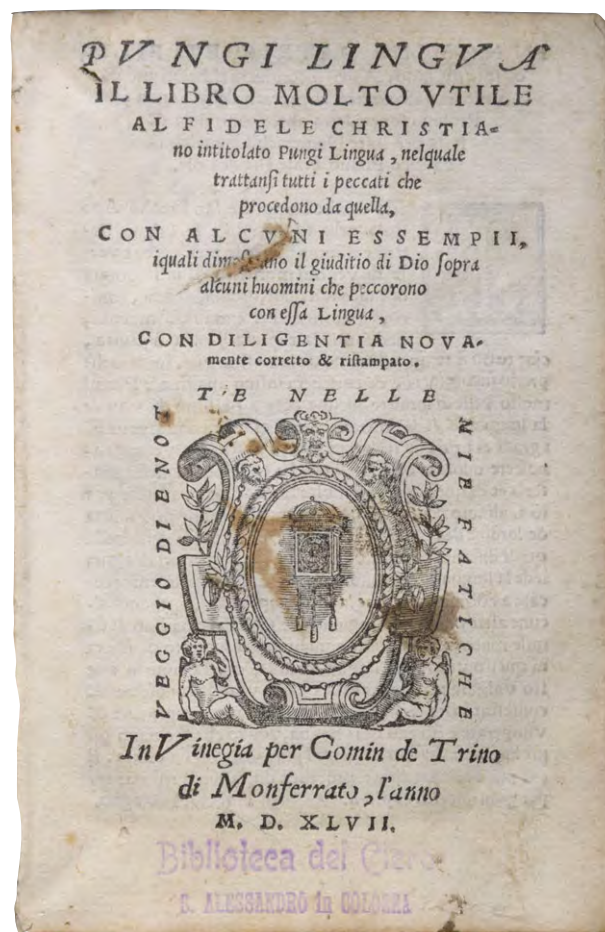 PVNGI LINGVA
IL LIBRO MOLTO VTILE
AL FIDELE CHRISTIA=
no intitolato Pungi Lingua, nelquale
trattanſi tutti i peccati che
procedono da quella,
CON ALCVNI ESSEMPII,
iquali dimoſtrano il giuditio di Dio ſopra
alcuni huomini che peccorono
con eſſa Lingua,
CON DILIGENTIA NOVA-
mente corretto & riſtampato.
VEGGIO DI ENOT
TE NELLE
MIE FATICHE
In Vinegia per Comin de Trino
di Monferrato, l'anno
M. D. XLVII.
Biblioteca del Clero
S. ALESSANDRO in COLONNA